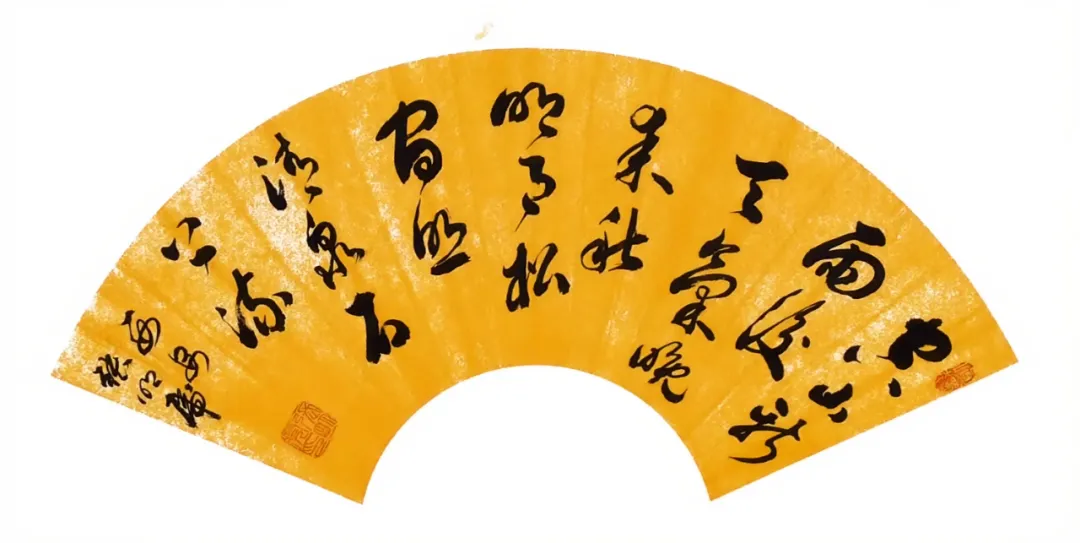 空山新
雨後
天氣晚
来秋
明月松
间照
清泉石
上流